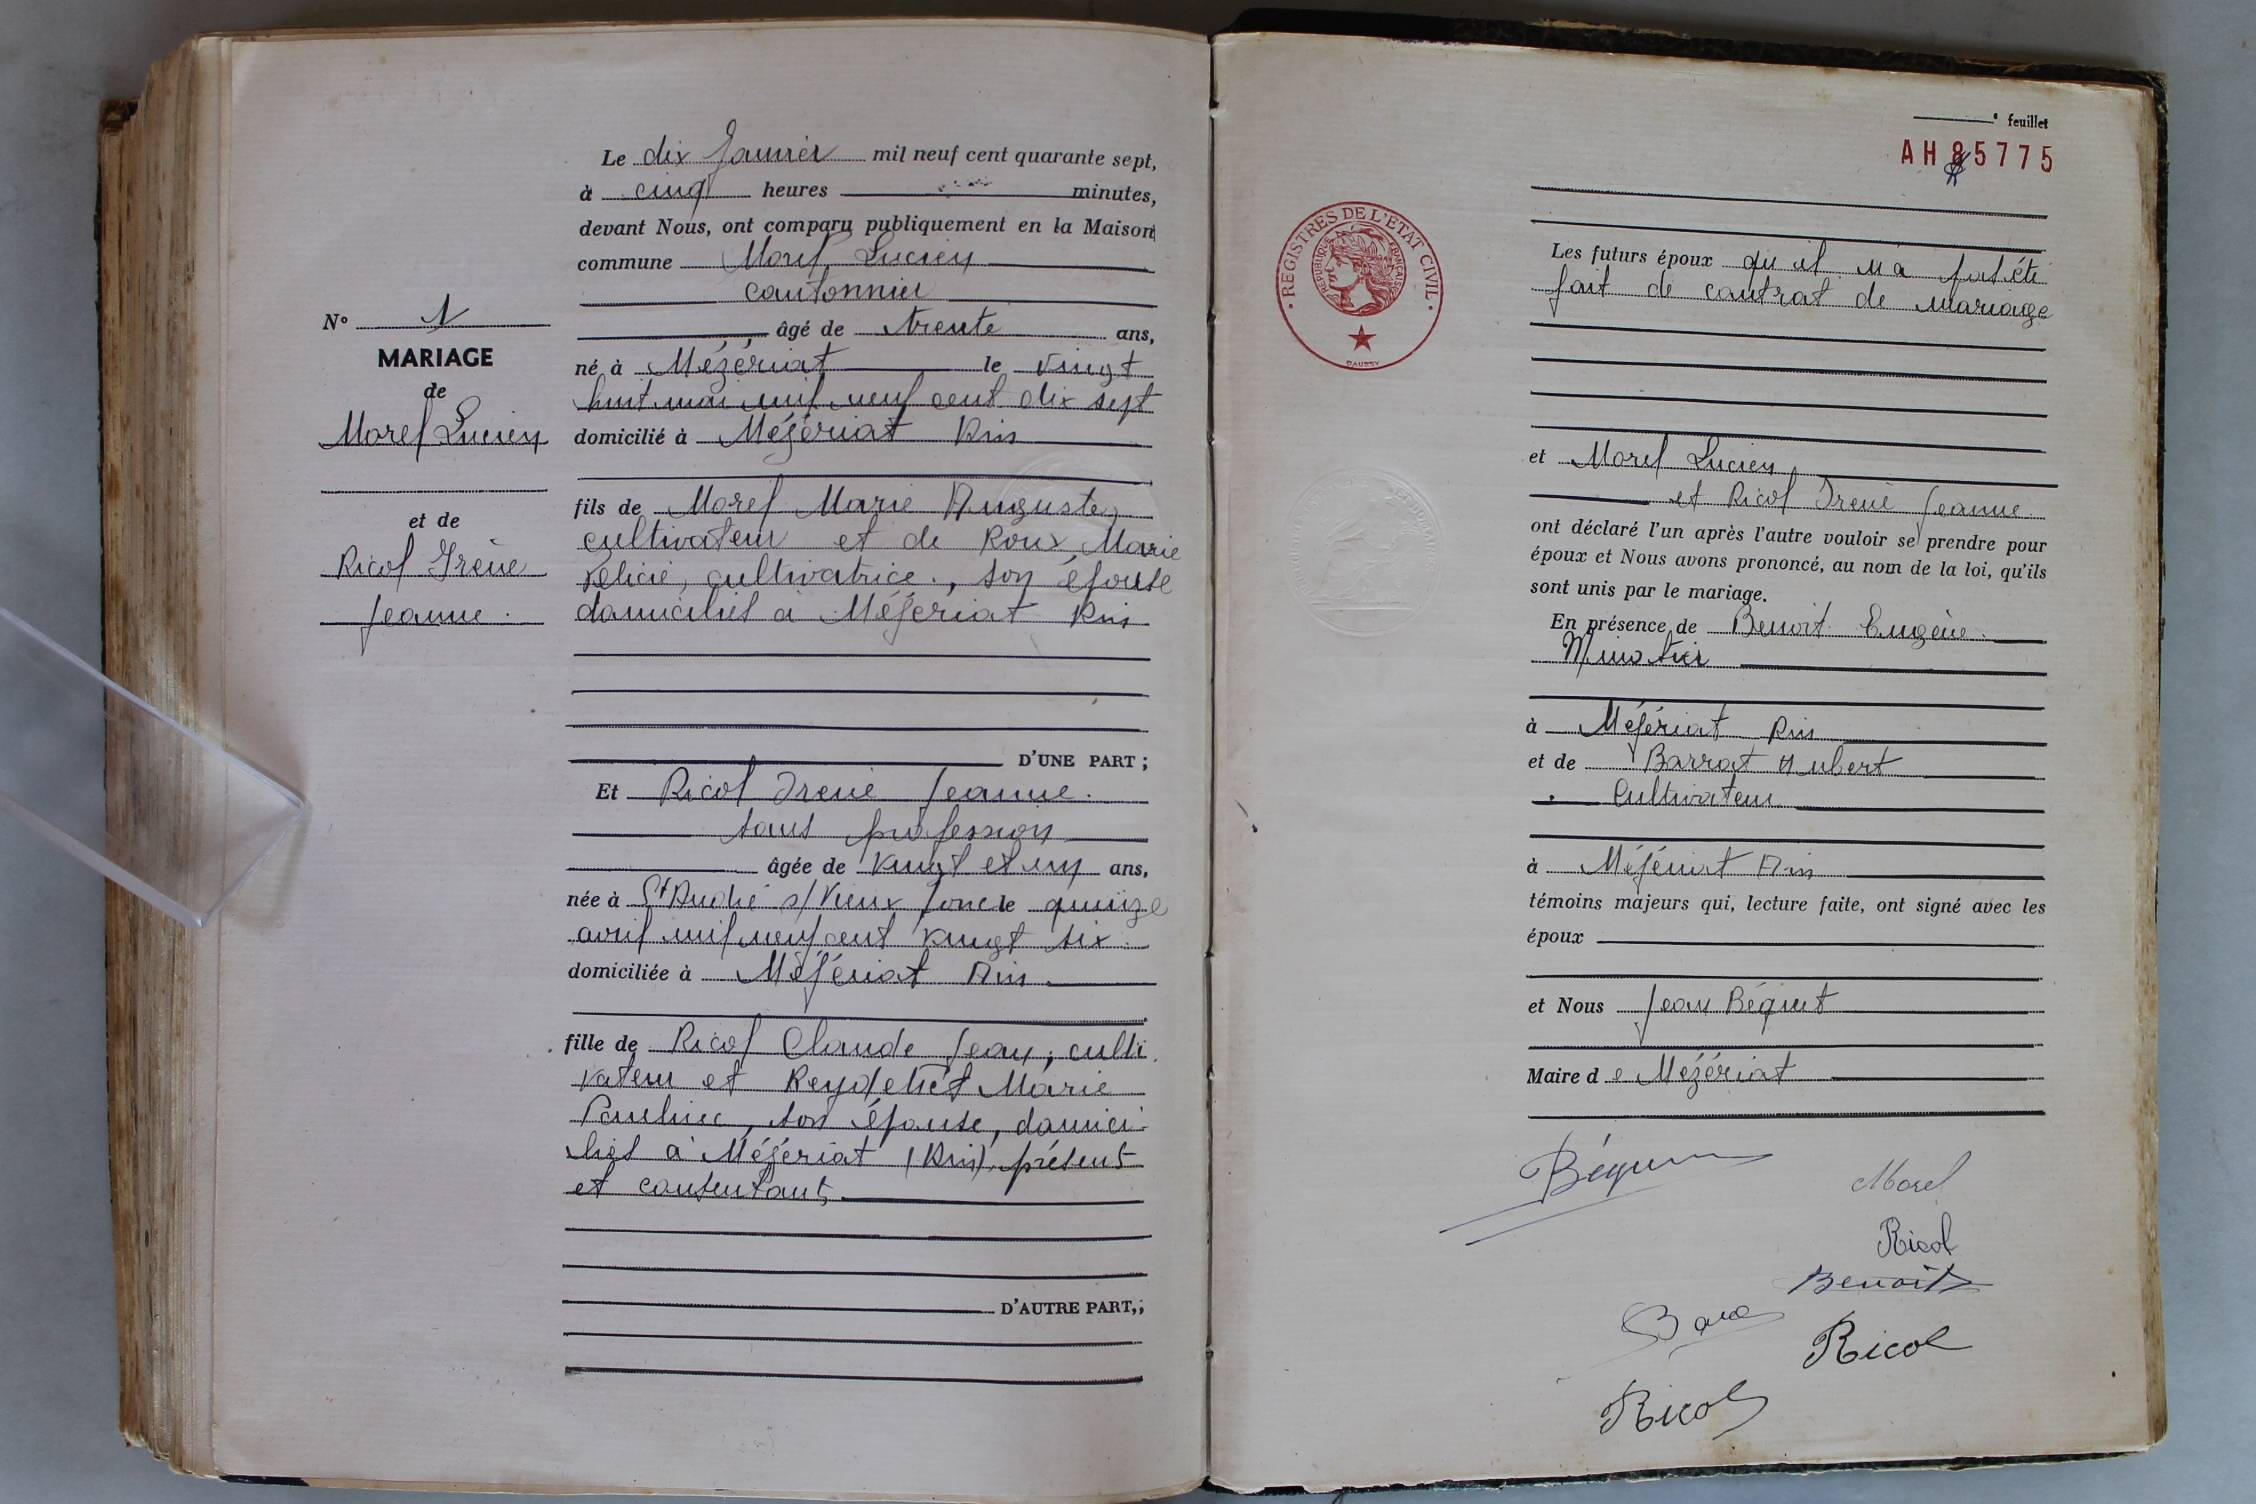 Le dix Janvier mil neuf cent quarante sept,
à cinq heures minutes,
devant Nous, ont comparu publiquement en la Maison
commune Morel Lucien
cantonnier
âgé de trente ans,
né à Mézériat le vingt
huit mai mil neuf cent dix sept
domicilié à Mézériat Ain
fils de Morel Marie Auguste,
cultivateur et de Roux Marie
Félicie, cultivatrice, son épouse
domiciliés à Mézériat Ain
D'UNE PART ;
Et Ricol Irène Jeanne.
sans profession
âgée de vingt et un ans,
née à St André s/ Vieux Jonc le quinze
avril mil neuf cent vingt six.
domiciliée à Mézériat Ain.
fille de Ricol Claude Jean, culti
vateur et Reydellet Marie
Pauline, son épouse, domici-
liés à Mézériat (Ain), présents
et consentants
D'AUTRE PART,;
N° 1
MARIAGE
de
Morel Lucien
et de
Ricol Irène
Jeanne.
feuillet
AH 85775
REGISTRES DE L'ETAT CIVIL
REPUBLIQUE FRANÇAISE
DAUSSY
Les futurs époux qu'il n'a pas été
fait de contrat de mariage
et Morel Lucien
et Ricol Irène Jeanne
ont déclaré l'un après l'autre vouloir se prendre pour
époux et Nous avons prononcé, au nom de la loi, qu'ils
sont unis par le mariage.
En présence de Benoit Eugène.
Minotier
à Mézériat Ain
et de Barrat Hubert
Cultivateur
à Mézériat Ain
témoins majeurs qui, lecture faite, ont signé avec les
époux
et Nous Jean Béguet
Maire de Mézériat
Morel
Ricol
Benoit
Ricol
Ricol